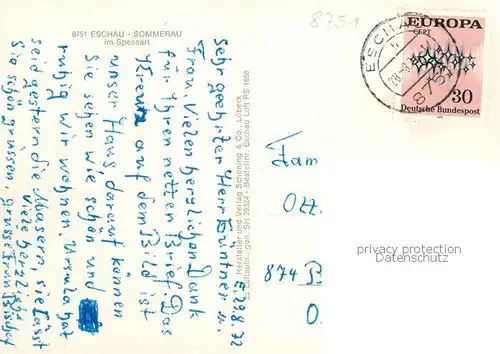 8751 ESCHAU - SOMMERAU
im Spessart
8751
EUROPA
CEPT
30
Deutsche Bundespost
ESCHAU
875
E. 29.8.72
Sehr geehrter Herr Güntner u.
Frau. Vielen herzlichen Dank
für Ihren netten Brief. Das
Kreuz auf dem Bild ist
unser Haus, darauf können
Sie sehen wie schön und
ruhig wir wohnen. Ursula hat
seid gestern die Masern, sie lässt
Sie schön grüssen, Viele herzliche
grüsse Frau Bischof
Hersteller und Verlag Schöning & Co., Lübeck
Luftaufn., gen. SH 39324 - Bestellnr. Eschau Luft RS 1658
Fam
Ott.
874
O.
privacy protection
Datenschutz